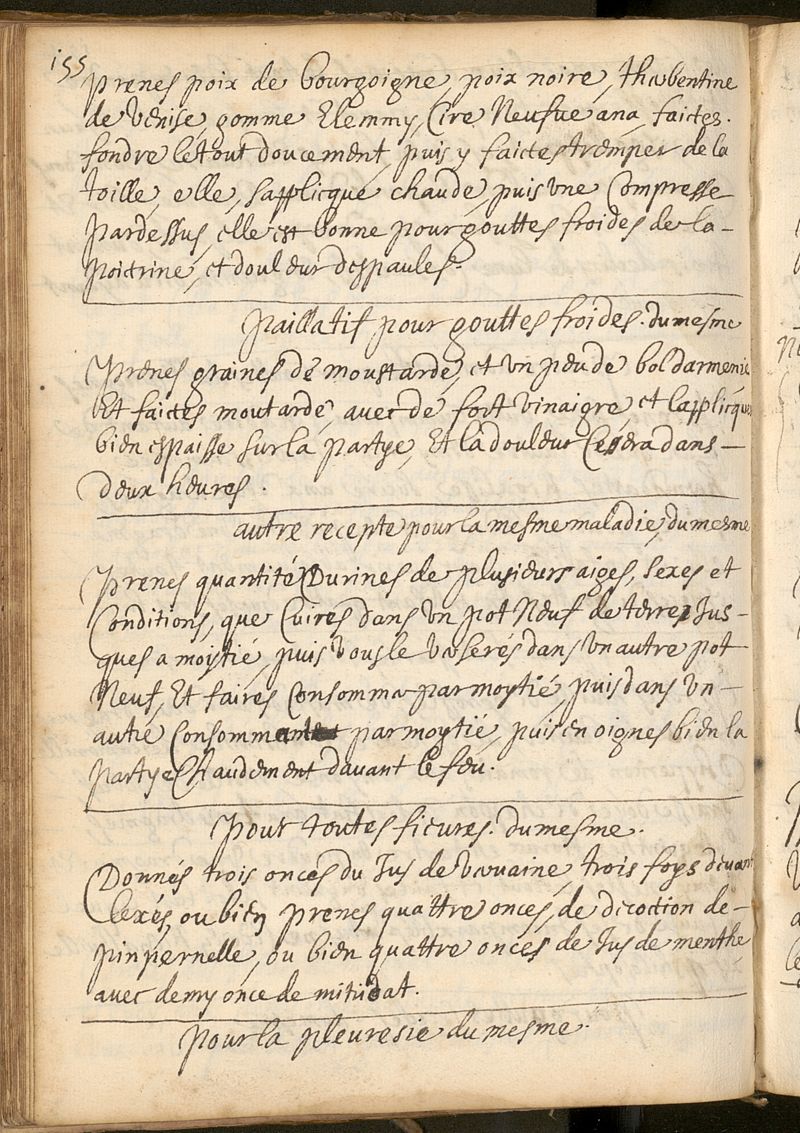 155
Prenes poix de bourgoigne, poix noire, thabentine
de venise, gomme Elemmy, Cire Neufue ana, faictes.
fondre le tout doucement, puis y faictes tremper de la
toille, elle, sapplicque chaude, puis vne Compresse
Pardessus, elle est bonne pour gouttes froides de la-
poictrine, et douleur despaules.
Paillatif pour gouttes froides. du mesme
Prenes graines de moustarde, et vn peu de bol darmenie
Et faictes moutarde, avec de fort vinaigre, et lapplicques
bien espaisse sur la partye, Et la douleur Cessera dans-
deux heures.
autre recepte pour la mesme maladie, du mesme
Prenes quantité Durines de plusieurs aiges, sexes et
Conditions, que Cuires dans vn pot Neuf de terre, Jus-
ques a moytié, puis vous le verserés dans vn autre pot
Neuf, Et faires Consommer par moytié, puis dans vn-
autre Consomm par moytié, puis en oignes bien la
partye Chaudement davant le feu.
Pour toutes fieures. du mesme.
Donnés trois onces du Jus de varuaine, trois foys devant
lexés, ou bien prenes quattre onces, de decoction de-
pinpernelle, ou bien quattre onces de Jus de menthe
avec demy once de mitridat.
Pour la pleuresie du mesme.